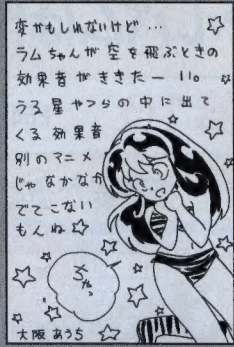 変かもしれないけど…
ラムちゃんが空を飛ぶときの
効果音がききたーい。
うる星やつらの中に出て
くる効果音
別のアニメ
じゃなかなか
でてこない
もんね
大阪 あうち